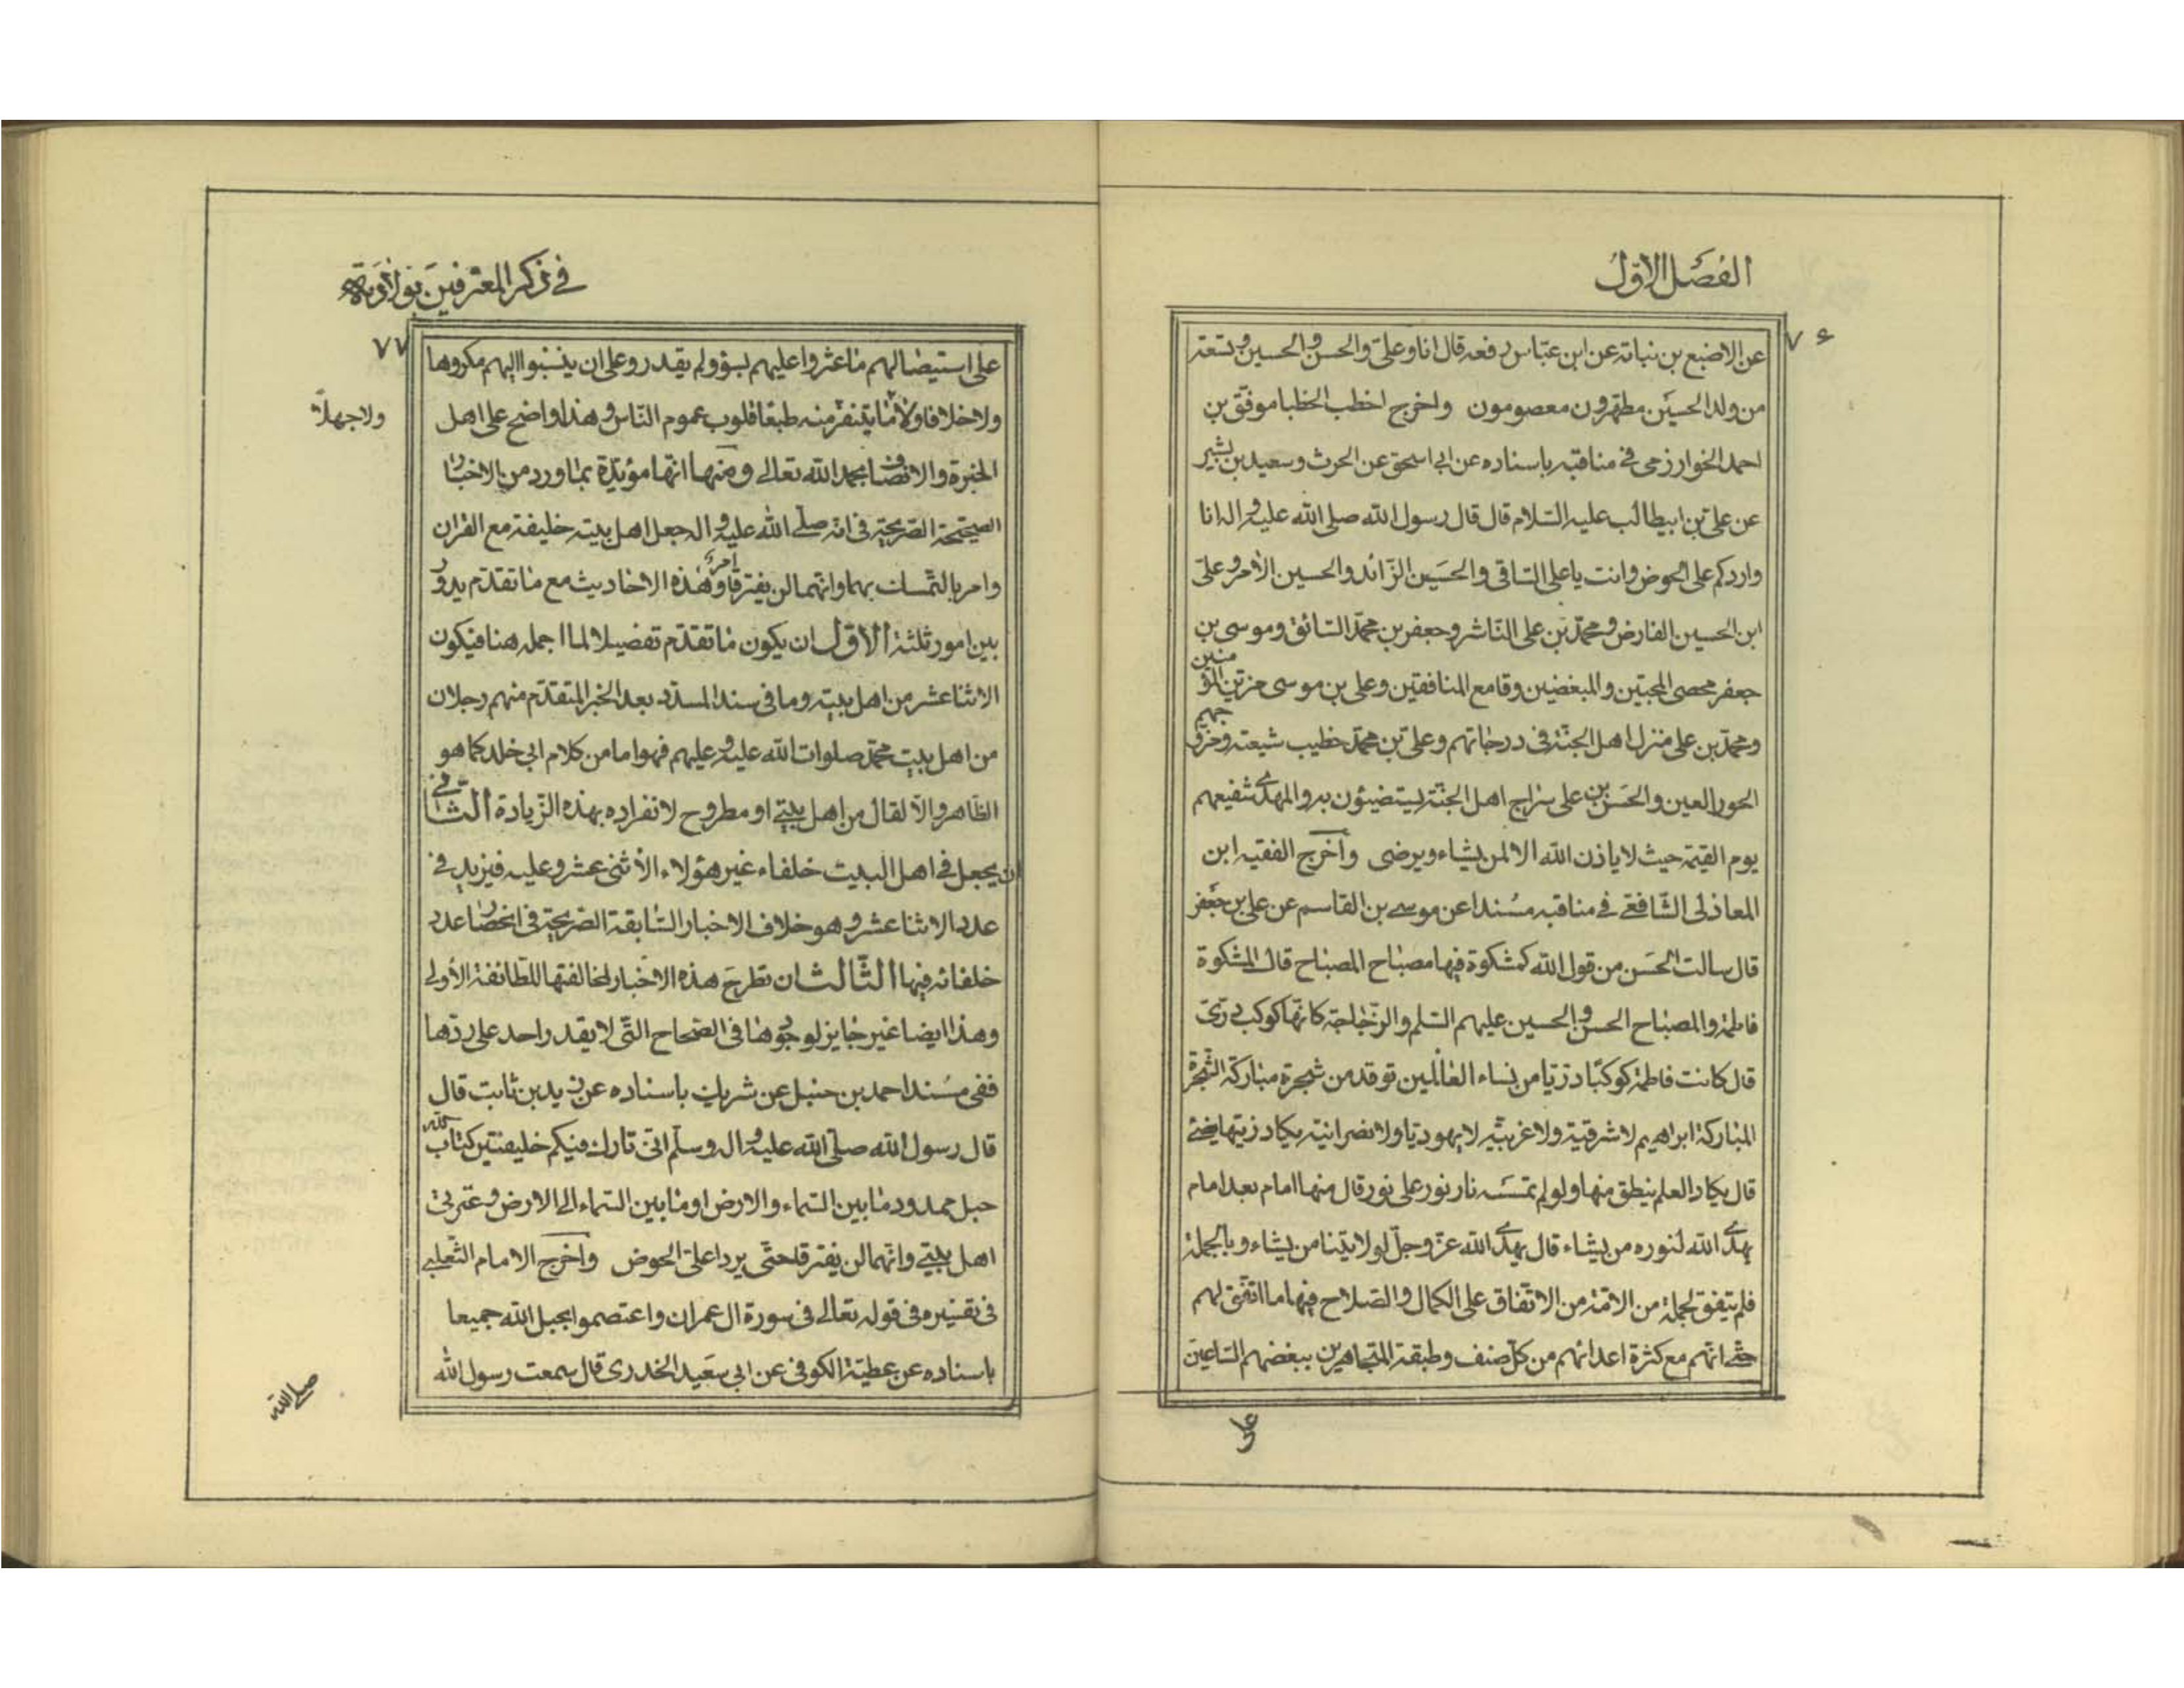 الفصل الاول
۷۶
عن الاصبغ بن نباته عن ابن عباس رفعه قال انا وعلى والحسن والحسين وتسعة
من ولد الحسين مطهرون معصومون واخرج اخطب الخطبا موفق بن
احمد الخوارزمى فى مناقبه باسناده عن ابى اسحق عن الحرث وسعيد بن بشير
عن على بن ابيطالب عليه السلام قال قال رسول الله صلى الله عليه واله انا
واردكم على الحوض وانت يا على الساقى والحسن الزائد والحسين الأمر وعلى
ابن الحسين الفارض ومحمد بن على الناشر وجعفر بن محمد السائق وموسى بن
جعفر محصى المحبين والمبغضين وقامع المنافقين وعلى بن موسى مزين المؤمنين
ومحمد بن على منزل اهل الجنة فى درجاتهم وعلى بن محمد خطيب شيعته ومزوجهم
الحور العين والحسن بن على سراج اهل الجنة يستضيئون به والمهدى شفيعهم
يوم القيمة حيث لا ياذن الله الا لمن يشاء ويرضى واخرج الفقيه ابن
المغازلى الشافعى فى مناقبه مسندا عن موسى بن القاسم عن على بن جعفر
قال سالت الحسن من قول الله كمشكوة فيها مصباح المصباح قال المشكوة
فاطمة والمصباح الحسن والحسين عليهم السلم والزجاجة كانها كوكب درى
قال كانت فاطمة كوكبا دريا من نساء العالمين توقد من شجرة مباركة الشجرة
المباركة ابراهيم لا شرقية ولا غربية لا يهوديا ولا نصرانية يكاد زيتها يضئ
قال يكاد العلم ينطق منها ولو لم تمسسه نار نور على نور قال منها امام بعد امام
يهدى الله لنوره من يشاء قال يهدى الله عز وجل لولايتنا من يشاء وبالجملة
فلم يتفق لجملة من الامة من الاتفاق على الكمال والصلاح فيها ما اتفق لهم
حتى انهم مع كثرة اعدائهم من كل صنف وطبقة المتجاهرين ببغضهم الساعين
على
فى ذكر المعترفين بولادته
۷۷
على استيصالهم ما عثروا عليهم بسوء ولم يقدروا على ان ينسبوا اليهم مكروها
ولا خلافا ولا مما يتنفر منه طبعا قلوب عموم الناس وهذا واضح على اهل
ولا جهلا
الخبرة والانصاف بحمد الله تعالى ومنها انها مؤيدة بما ورد من الاخبار
الصحيحة الصريحة فى انه صلى الله عليه واله جعل اهل بيته خليفة مع القران
وامر بالتمسك بهما وانهما لن يفترقا وهذه الاخاديث مع ما تقدم يدور امره
بين امور ثلثة الاول ان يكون ما تقدم تفصيلا لما اجمله هنا فيكون
الاثنا عشر من اهل بيته وما فى سند المسدد بعد الخبر المتقدم منهم رجلان
من اهل بيت محمد صلوات الله عليه وعليهم فهو اما من كلام ابى خلد كما هو
الظاهر والا لقال من اهل بيتى او مطروح لانفراده بهذه الزيادة الثانى
ان يجعل فى اهل البيت خلفاء غير هؤلاء الأثنى عشر وعليه فيزيد فى
عدد الاثنا عشر وهو خلاف الاخبار السابقة الصريحة فى انحصار عدد
خلفائه فيها الثالث ان تطرح هذه الاخبار لمخالفتها للطائفة الأولى
وهذا ايضا غير جايز لوجودها فى الصحاح التى لا يقدر احد على ردها
ففى مسند احمد بن حنبل عن شريك باسناده عن زيد بن ثابت قال
قال رسول الله صلى الله عليه واله وسلم انى تارك فيكم خليفتين كتاب الله
حبل ممدود ما بين السماء والارض او ما بين السماء الى الارض وعترتى
اهل بيتى وانهما لن يفترقا حتى يردا على الحوض واخرج الامام الثعلبى
فى تفسيره فى قوله تعالى فى سورة ال عمران واعتصموا بحبل الله جميعا
باسناده عن عطية الكوفى عن ابى سعيد الخدرى قال سمعت رسول الله
صلى الله